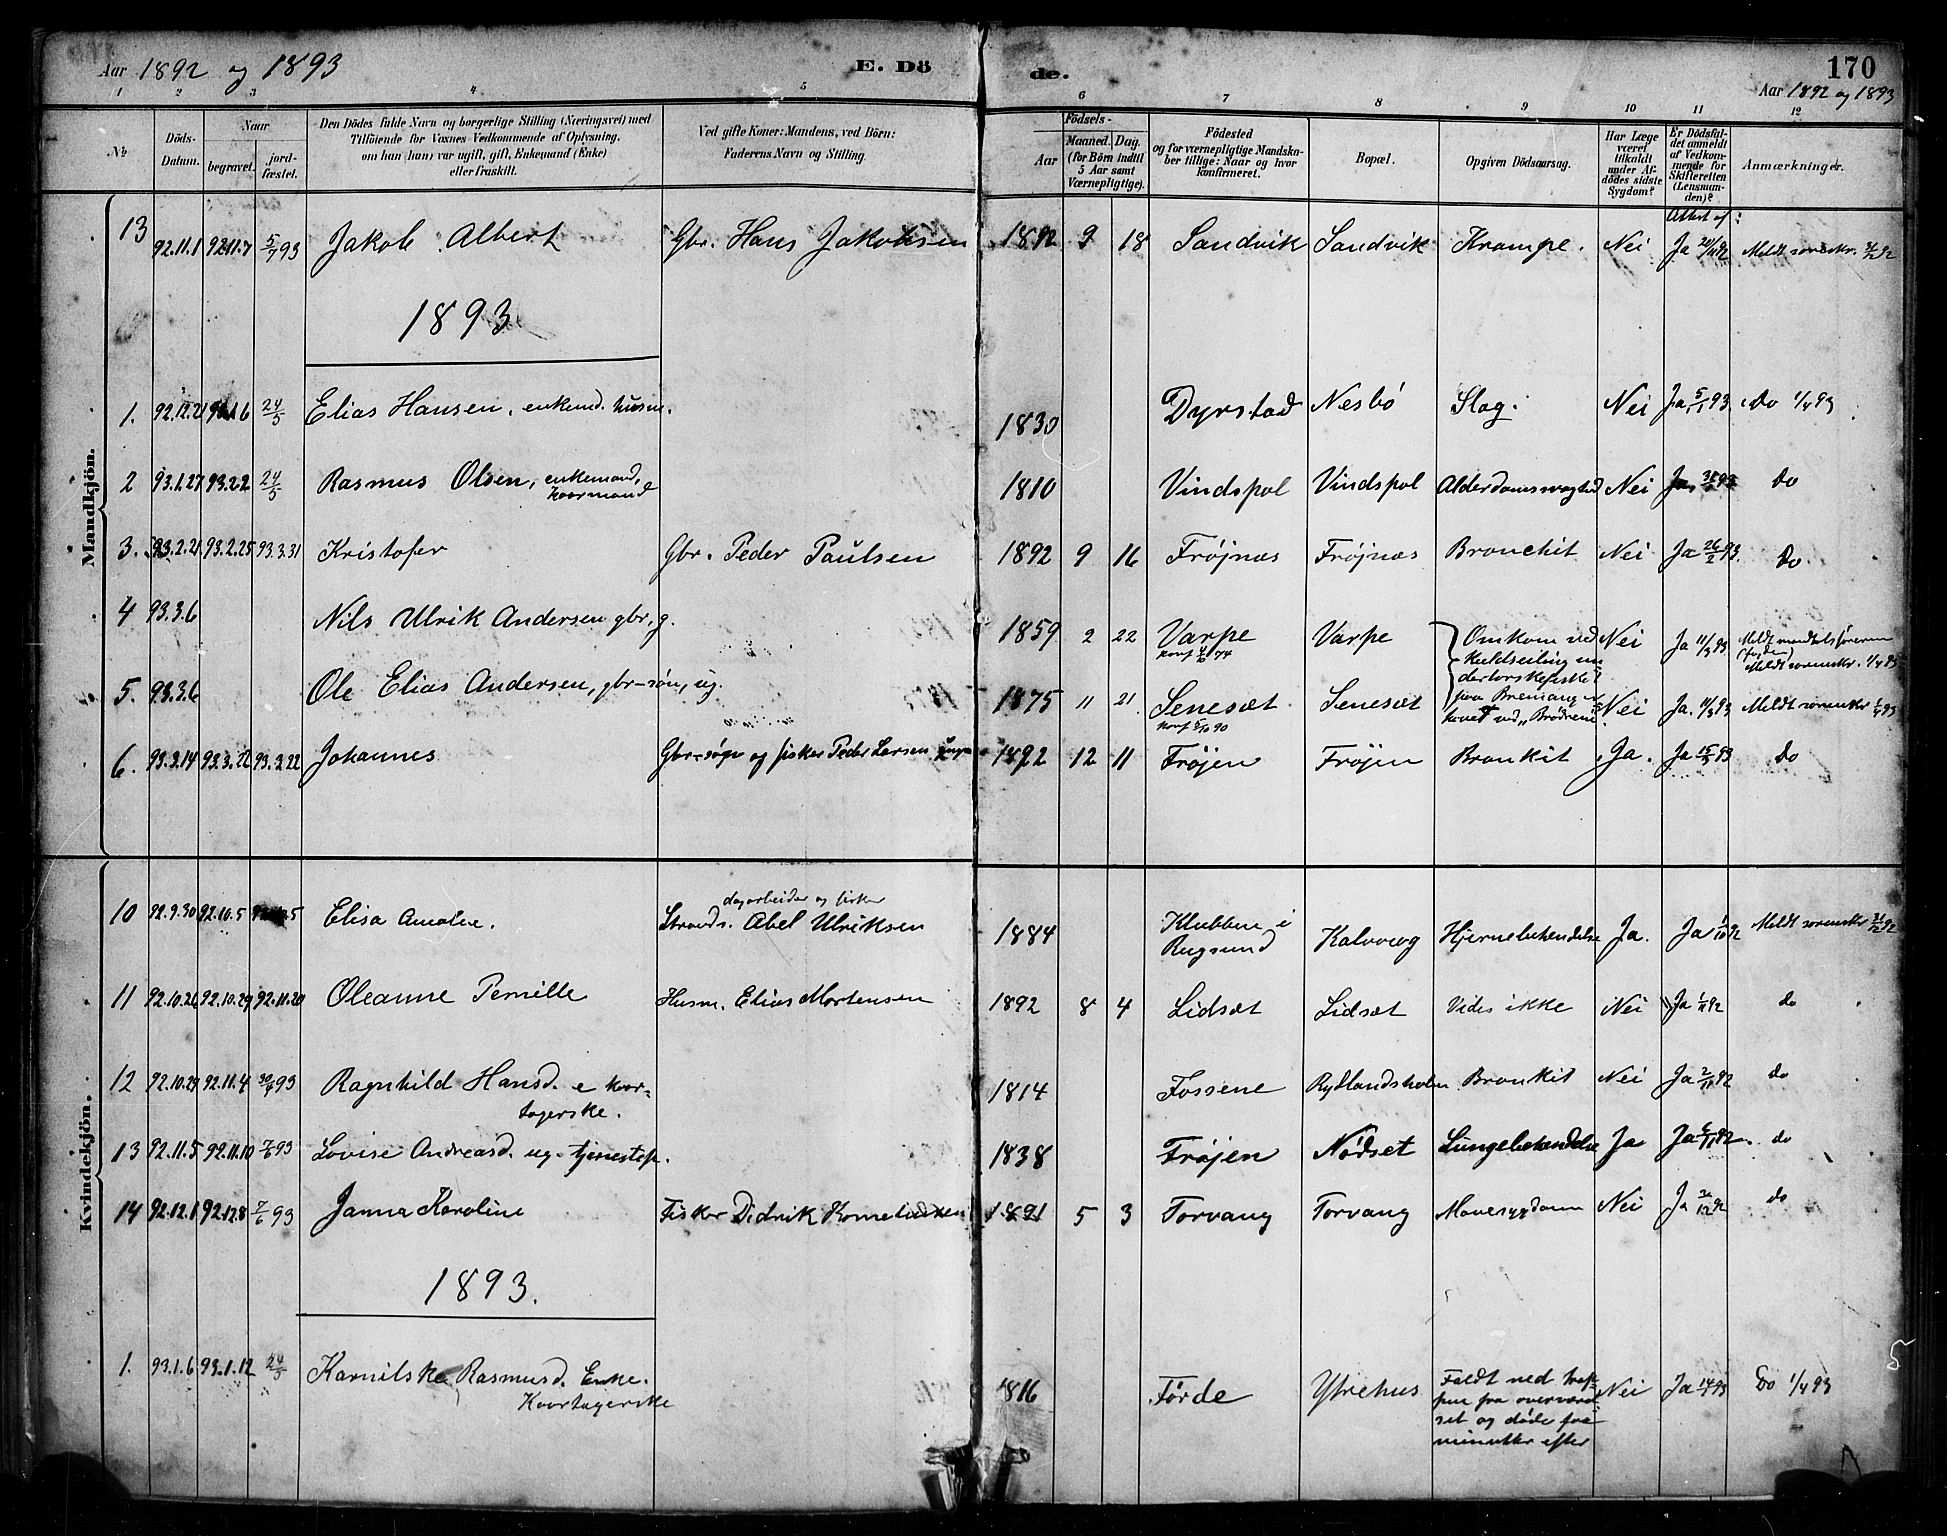 Aar 1892 og 1893 E. Dö
de. 170
Aar 1892 og 1893
1 2 3 4 5 6 7 8 9 10 11 12
No Döds-Datum. Naar begravet. jordfæstet. Den Dödes fulde Navn og borgerlige Stilling (Næringsvei) med Tilföiende for Voxnes Vedkommende af Oplysning, om han (hun) var ugift, gift, Enkemand (Enke) eller fraskilt. Ved gifte Koner: Mandens, ved Börn: Faderens Navn og Stilling. Födsels- Aar Maaned. Dag. (for Börn indtil 5 Aar samt Værnepligtige). Födested og for værnepligtige Mandskaber tillige: Naar og hvor konfirmeret. Bopæl. Opgiven Dödsaarsag. Har Læge været tilkaldt under Afdödes sidste Sygdom? Er Dödsfaldet anmeldt af Vedkommende for Skifteretten (Lensmanden)? Anmærkninger.
Mandkjön.
13 92.11.1 92.11.7 5/7 93 Jakob Albert Gbr. Hans Jakobsen 1892 9 18 Sandvik Sandvik Krampe. Nei Attest af: Ja 20/11 92 Meldt sorenskr. 31/12 92
1893
1. 92.12.21 93.1.6 24/5 Elias Hansen, enkemd. husm. 1830 Dyrstad Nesbö Slag. Nei Ja 5/1 93. do 1/4 93
2 93.1.27 93.2.2 24/5 Rasmus Olsen, enkemand, kaarmand 1810 Vindspol Vindspol Alderdomssvaghed Nei Ja, do
3. 93.2.21 93.2.25 93.3.31 Kristofer Gbr. Peder Paulsen 1892 9 16 Fröjnæs Fröjnæs Bronchit Nei Ja 26/2 93. Do
4 93.3.6 Nils Ulrik Andersen gbr, g. 1859 2 22 Varpe Varpe Omkom ved Nei Ja 11/3 93 Meldt mandtalsföreren
konf 4/6 74 kuldseiling un- (fogden)
dertorskefiske Meldt sorenskr. 1/4 93
5. 93.3.6 Ole Elias Andersen, gbr-sön, ug. 1875 11 21. Senesæt Senesæt paa Bremang er- Nei Ja. 11/3 93 Meldt sorenskr 1/4 93
konf 5/10 90 havet ved „Brödrene".
6. 93.3.14 93.3.22 93.3.22 Johannes Gbr-söge og fisker Peder Larsen 1892 12 11 Fröjen Fröjen Bronkit Ja. Ja 15/3 93 do
Kvindekjön.
10 92.9.30 92.10.5 Elisa Amalie. dagarbeider og fisker
Strands. Abel Ulriksen 1884 Klubben i Rugsund Kalvaag Hjernebetændelse Ja. Ja 1/10 92 Meldt sorenskr 31/12 92
11 92.10.26 92.10.29 92.11.20 Oleanne Pernille Husm. Elias Mortensen 1892 8 4 Lidsæt Lidsæt Vides ikke Nei Ja 1/11 92 do
12 92.10.29 92.11.4 30/4 93 Ragnhild Hansd. e kaar-
tagerske. 1814 Fossene Rydlandsholm Bronkit Nei Ja 2/11 92 do
13 92.11.5 92.11.10 7/6 93 Lovise Andreasd. ug. tjenestep. 1838 Fröjen Nödset Lungebetændelse Ja Ja 6/11 92. do
14 92.12.1 92.12.8 7/6 93 Janna Karoline Fisker Didrik Korneliussen 1891 5 3 Torvang Torvang Mavesygdom Nei Ja 3/12 92 do
1893.
1. 93.1.6 93.1.12 24/5 Karnilske Rasmusd. Enke. 1816 Förde Ytrehus Faldt ned trap- Nei Ja 14/1 93 Do 1/4 93
Kaartagerske pen fra overværel-
set og döde faa
minutter efter